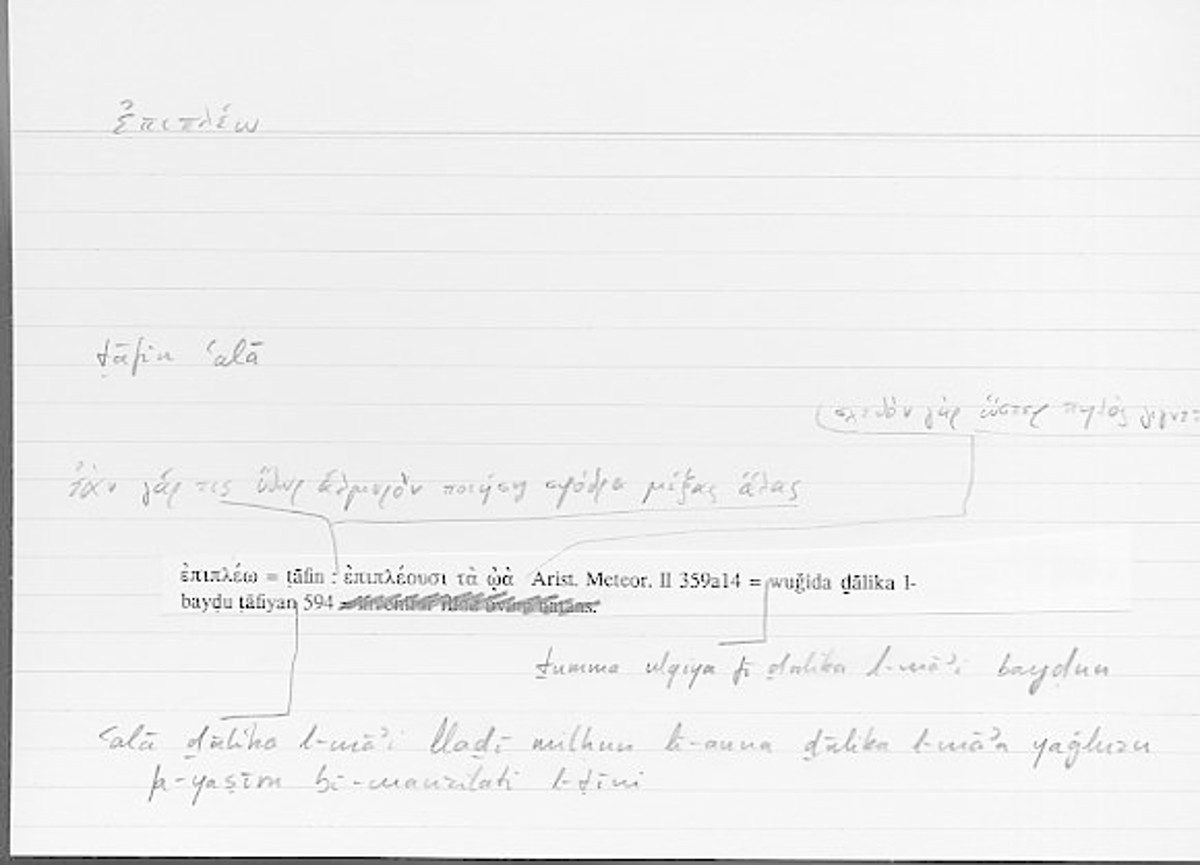 ἐπιπλέω
ṭāfin ʿalā
(σχεδὸν γὰρ ὥσπερ πηλὸς γίγνετ
ἐάν γάρ τις ὕδωρ ἁλμυρὸν ποιήσῃ σφόδρα μείξας ἅλας
ἐπιπλέω = ṭāfin : ἐπιπλέουσι τὰ ᾠὰ Arist. Meteor. II 359a14 = wuǧida ḏālika l-
bayḍu ṭāfiyan 594
ṯumma ulqiya fī ḏālika l-māʾi bayḍun
ʿalā ḏālika l-māʾi llaḏī milḥun li-anna ḏālika l-māʾa yaġluẓu
fa-yaṣīru bi-manzilati l-ṭīni